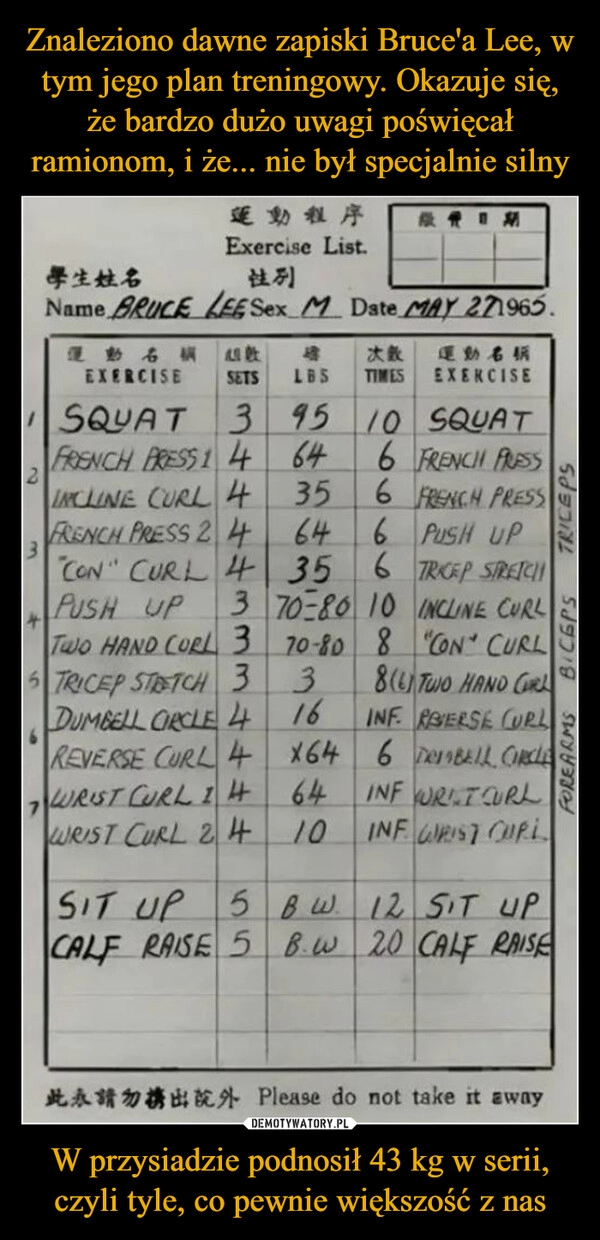 Znaleziono dawne zapiski Bruce'a Lee, w
tym jego plan treningowy. Okazuje się,
że bardzo dużo uwagi poświęcał
ramionom, i że... nie był specjalnie silny
運動程序
日期
Exercise List.
學生姓名 性別
Name BRUCE LEE Sex M Date MAY 27 1965.
運動名稱 組數 磅 次數 運動名稱
EXERCISE SETS LBS TIMES EXERCISE
1 SQUAT 3 95 10 SQUAT
2 FRENCH PRESS 1 4 64 6 FRENCH PRESS
INCLINE CURL 4 35 6 FRENCH PRESS
3 FRENCH PRESS 2 4 64 6 PUSH UP
"CON" CURL 4 35 6 TRICEP STRETCH
4 PUSH UP 3 70-80 10 INCLINE CURL
TWO HAND CURL 3 70-80 8 "CON" CURL
5 TRICEP STRETCH 3 3 8(L) TWO HAND CURL
6 DUMBELL CIRCLE 4 16 INF. REVERSE CURL
REVERSE CURL 4 X64 6 DUMBELL CIRCLE
7 WRIST CURL 1 4 64 INF WRIST CURL
WRIST CURL 2 4 10 INF. WRIST CURL
TRICEPS
BICEPS
FOREARMS
SIT UP 5 B.W. 12 SIT UP
CALF RAISE 5 B.W 20 CALF RAISE
此表請勿携出院外 Please do not take it away
DEMOTYWATORY.PL
W przysiadzie podnosił 43 kg w serii,
czyli tyle, co pewnie większość z nas